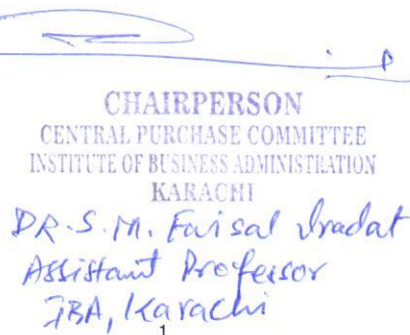 CHAIRPERSON
CENTRAL PURCHASE COMMITTEE
INSTITUTE OF BUSINESS ADMINISTRATION
KARACHI
DR. S. M. Faisal Iradat
Assistant Professor
IBA, Karachi
1